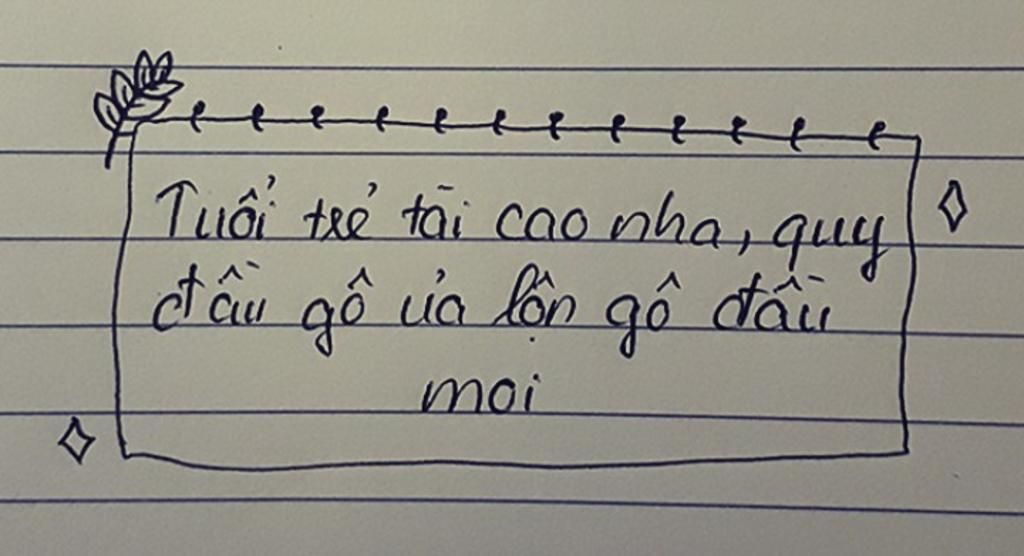 Tuổi trẻ tài cao nha, quy
đầu gô ủa lộn gô đầu
moi